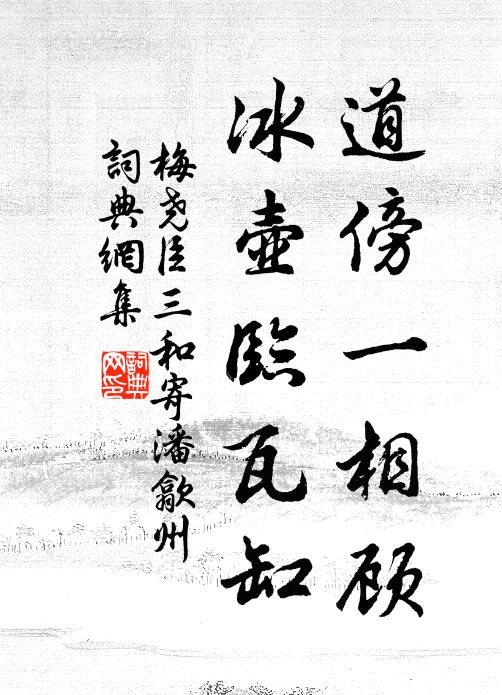 道傍一相顾
冰壶临瓦缶
梅尧臣三和寄潘歙州
詞典網集
詞典网印